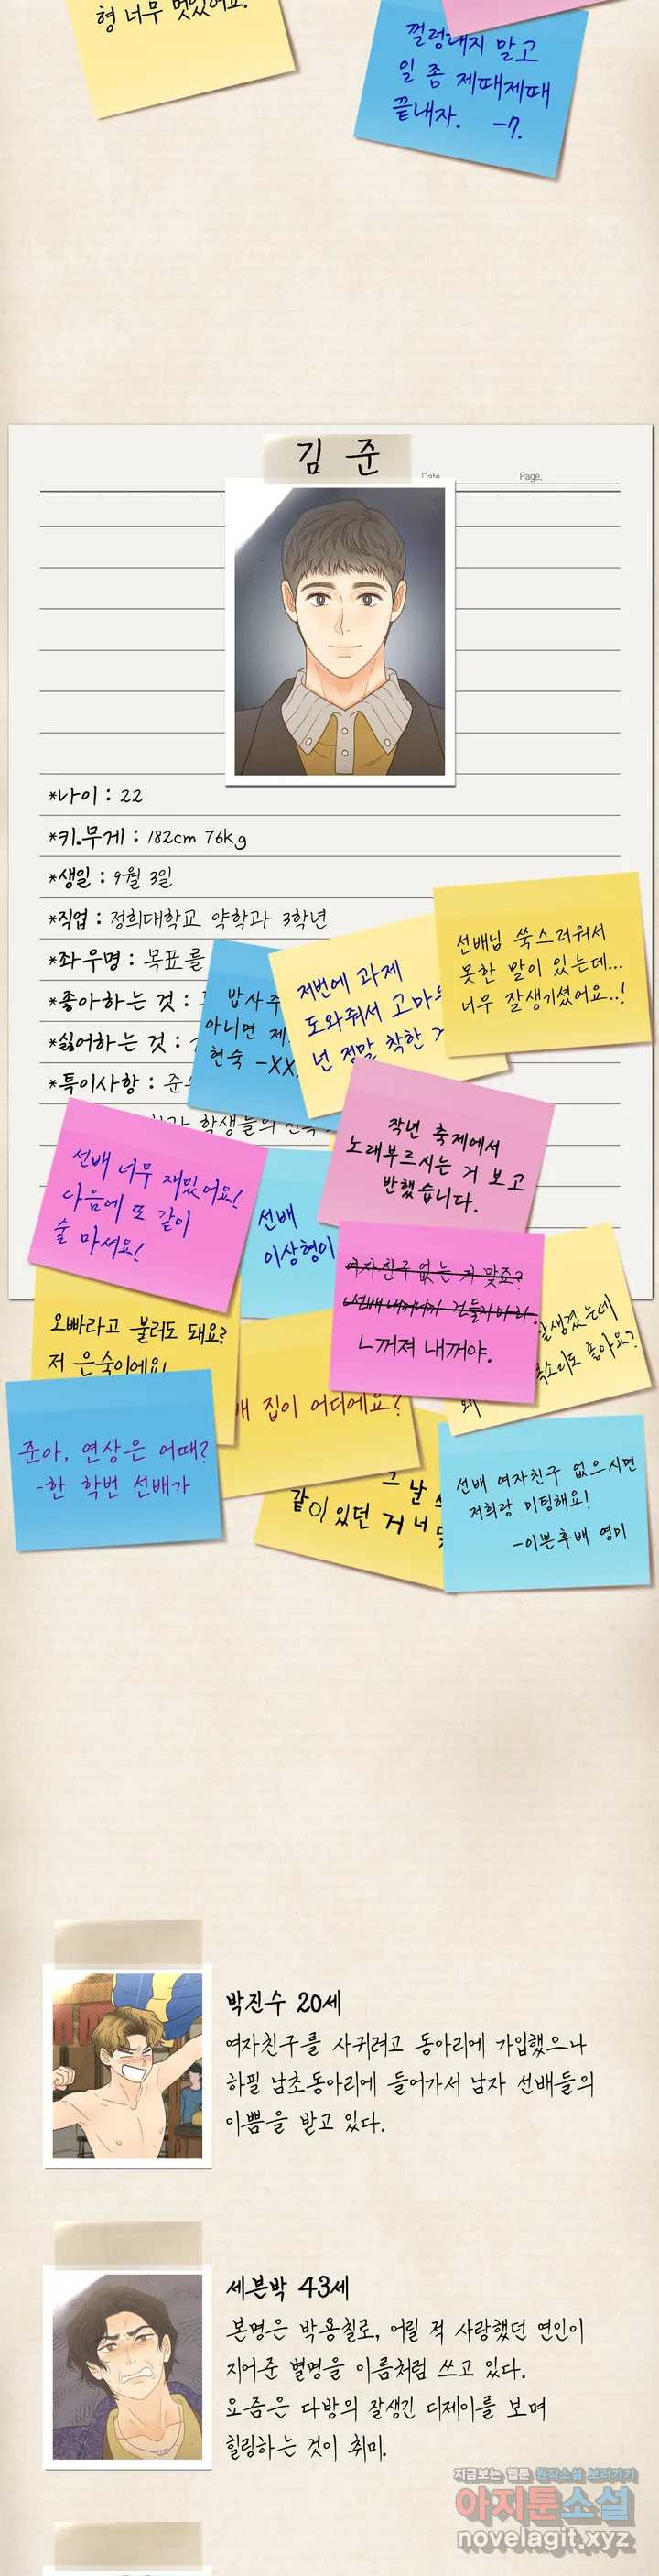 형 너무 멋있어요.
껄렁대지 말고
일 좀 제때제때
끝내자. -7.
김 준
Date.
Page.
*나이 : 22
*키.무게 : 182cm 76kg
*생일 : 9월 3일
*직업 : 정희대학교 약학과 3학년
*좌우명 : 목표를
*좋아하는 것 :
*싫어하는 것 :
*특이사항 : 준
학생들의
밥 사주
아니면 제
현숙 -XX.
저번에 과제
도와줘서 고마
넌 정말 착한
선배님 쑥스러워서
못한 말이 있는데...
너무 잘생기셨어요..!
작년 축제에서
노래부르시는 거 보고
반했습니다.
선배 너무 재밌어요!
다음에 또 같이
술 마셔요!
선배
이상형이
여자친구 없는 거 맞죠?
ㄴ꺼져 내꺼야.
잘생겼는데
목소리도 좋아요?
왜
오빠라고 불러도 돼요?
저 은숙이에요!
배 집이 어디에요?
준아, 연상은 어때?
-한 학번 선배가
그날
같이 있던 거 너
선배 여자친구 없으시면
저희랑 미팅해요!
-이쁜후배 영미
박진수 20세
여자친구를 사귀려고 동아리에 가입했으나
하필 남초동아리에 들어가서 남자 선배들의
이쁨을 받고 있다.
세븐박 43세
본명은 박용칠로, 어릴 적 사랑했던 연인이
지어준 별명을 이름처럼 쓰고 있다.
요즘은 다방의 잘생긴 디제이를 보며
힐링하는 것이 취미.
지금보는 웹툰 원작소설 보러가기
아지툰소설
novelagit.xyz